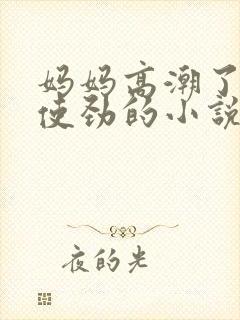 妈妈高潮了
使劲的小說
夜的光